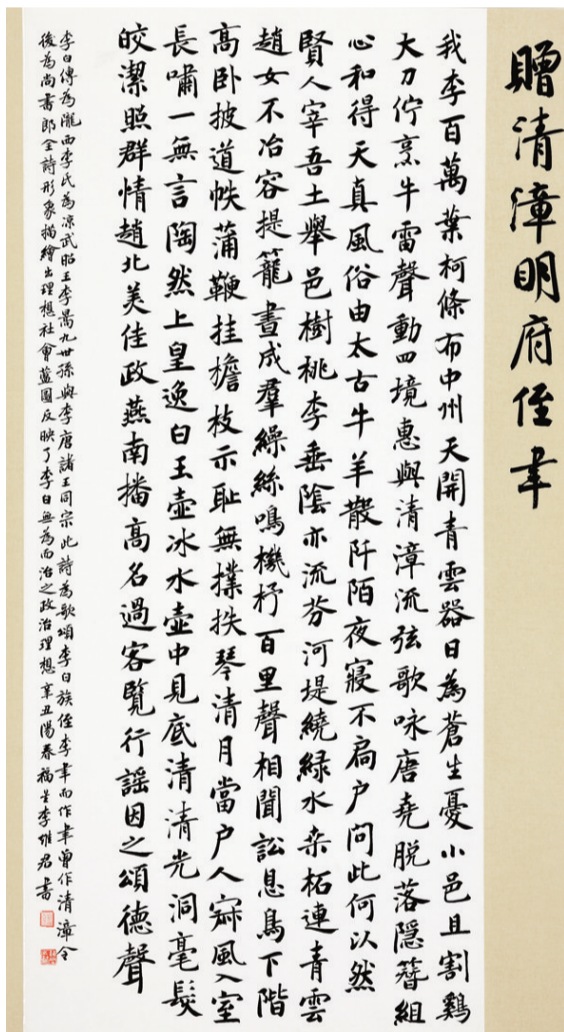 贈清漳明府侄聿
我李百萬葉柯條布中州天開青雲器日為蒼生憂小邑且割鷄
大刀佇烹牛雷聲動四境惠與清漳流弦歌咏唐堯脫落隱簪組
心和得天真風俗由太古牛羊散阡陌夜寢不扃户問此何以然
賢人宰吾土舉邑樹桃李垂陰亦流芬河堤繞緑水桑柘連青雲
趙女不冶容提籠晝成羣繰絲鳴機杼百里聲相聞訟息鳥下階
高卧披道帙蒲鞭挂檐枝示耻無撲抶琴清月當户人寂風入室
長嘯一無言陶然上皇逸白玉壺冰水壺中見底清清光洞毫髮
皎潔照群情趙北美佳政燕南播高名過客覽行謠因之頌德聲
李白傳為隴西李氏為凉武昭王李暠九世孫與李唐諸王同宗此詩為歌頌李白族侄李聿而作聿曾作清漳令
後為尚書郎全詩形象描繪出理想社會藍圖反映了李白無為而治之政治理想辛丑陽春福李維君書